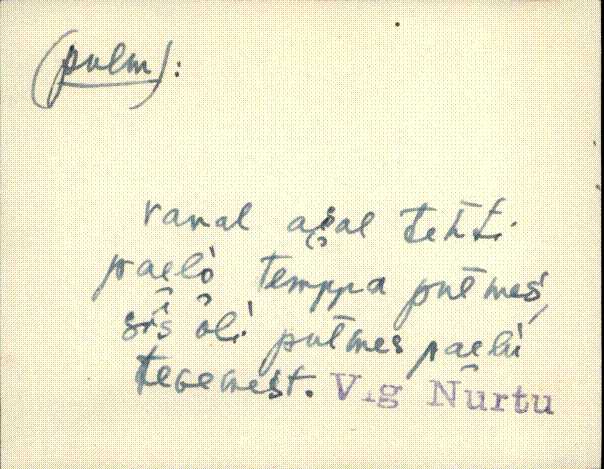 (pulm):
vanal ajal tehti
paelo temppa putmes,
sis oli putmes paelu
tegemest. Vig Nurtu